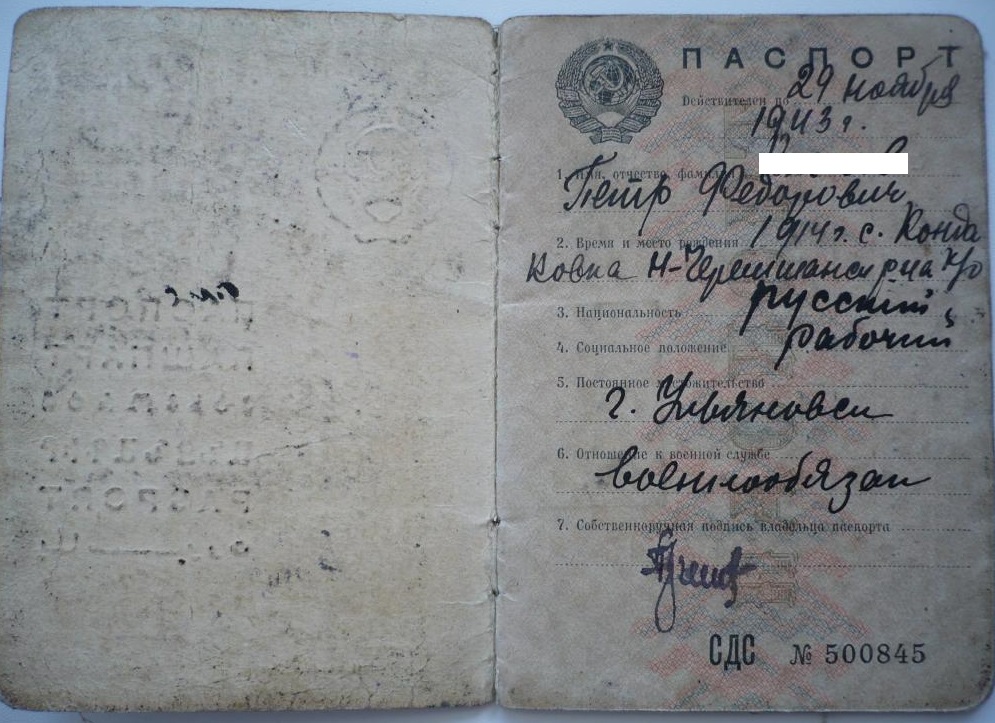 ПАСПОРТ
Действителен по 29 ноября
1943 г.
1. Имя, отчество, фамилия
Петр Федорович
2. Время и место рождения 1914 г. с. Конда
ковка Н-Черемшанск р-на к/о
3. Национальность русский,
4. Социальное положение рабочий
5. Постоянное местожительство
г. Ульяновск
6. Отношение к военной службе
военнообязан
7. Собственноручная подпись владельца паспорта
СДС № 500845